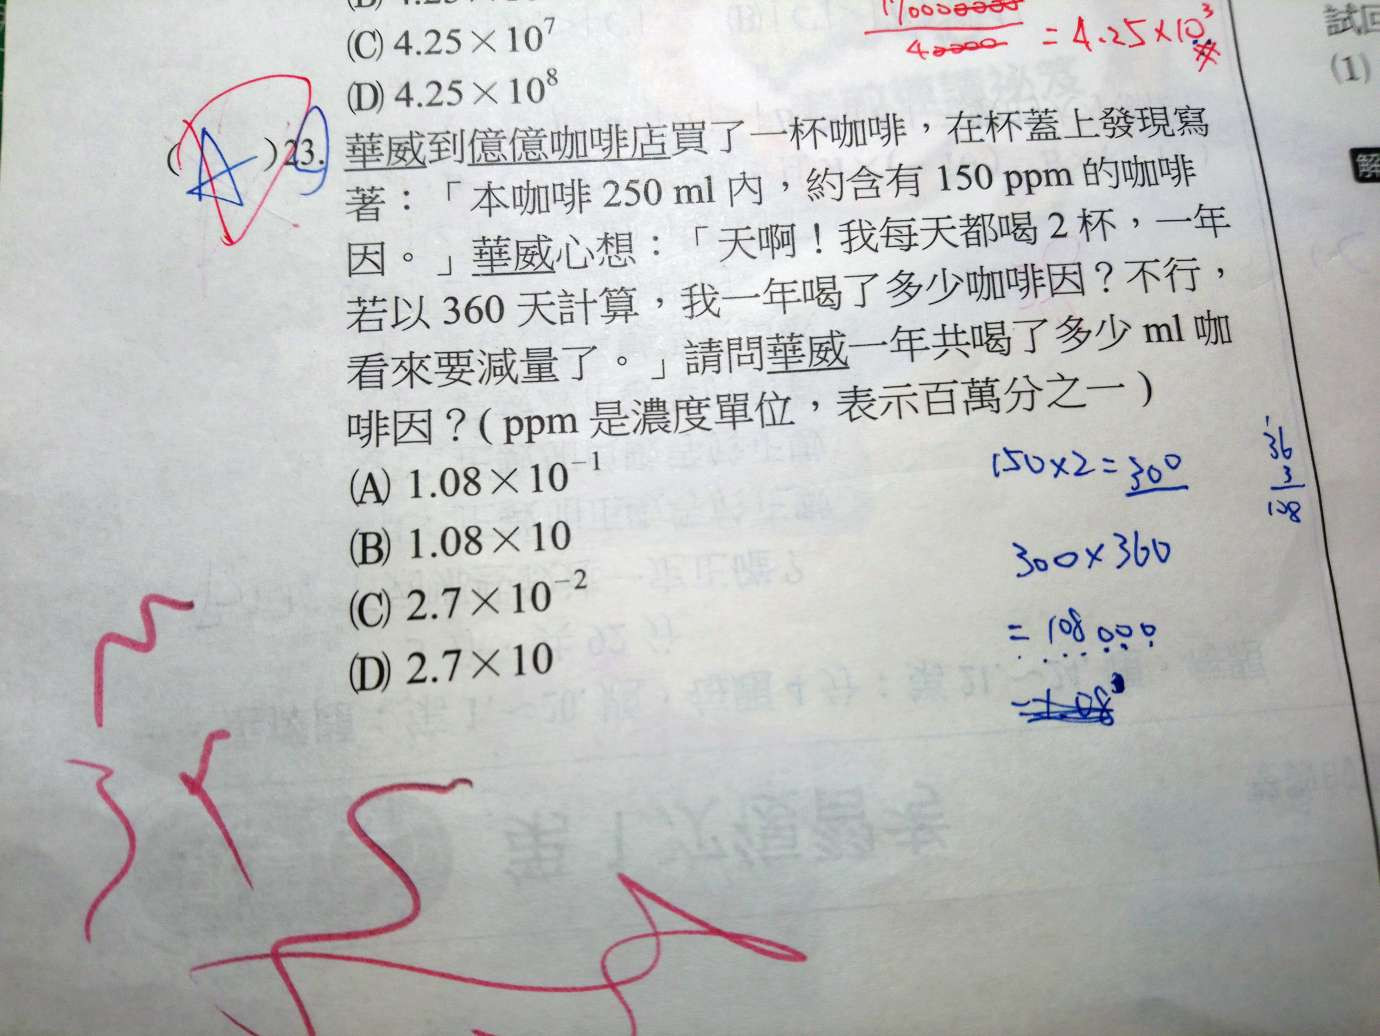 (C) 4.25×10⁷
(D) 4.25×10⁸
= 4.25×10³
試
(1)
解
( A )23. 華威到億億咖啡店買了一杯咖啡，在杯蓋上發現寫
著：「本咖啡 250 ml 內，約含有 150 ppm 的咖啡
因。」華威心想：「天啊！我每天都喝 2 杯，一年
若以 360 天計算，我一年喝了多少咖啡因？不行，
看來要減量了。」請問華威一年共喝了多少 ml 咖
啡因？( ppm 是濃度單位，表示百萬分之一 )
(A) 1.08×10⁻¹
(B) 1.08×10
(C) 2.7×10⁻²
(D) 2.7×10
150×2=300
300×360
= 108000
36
3
108